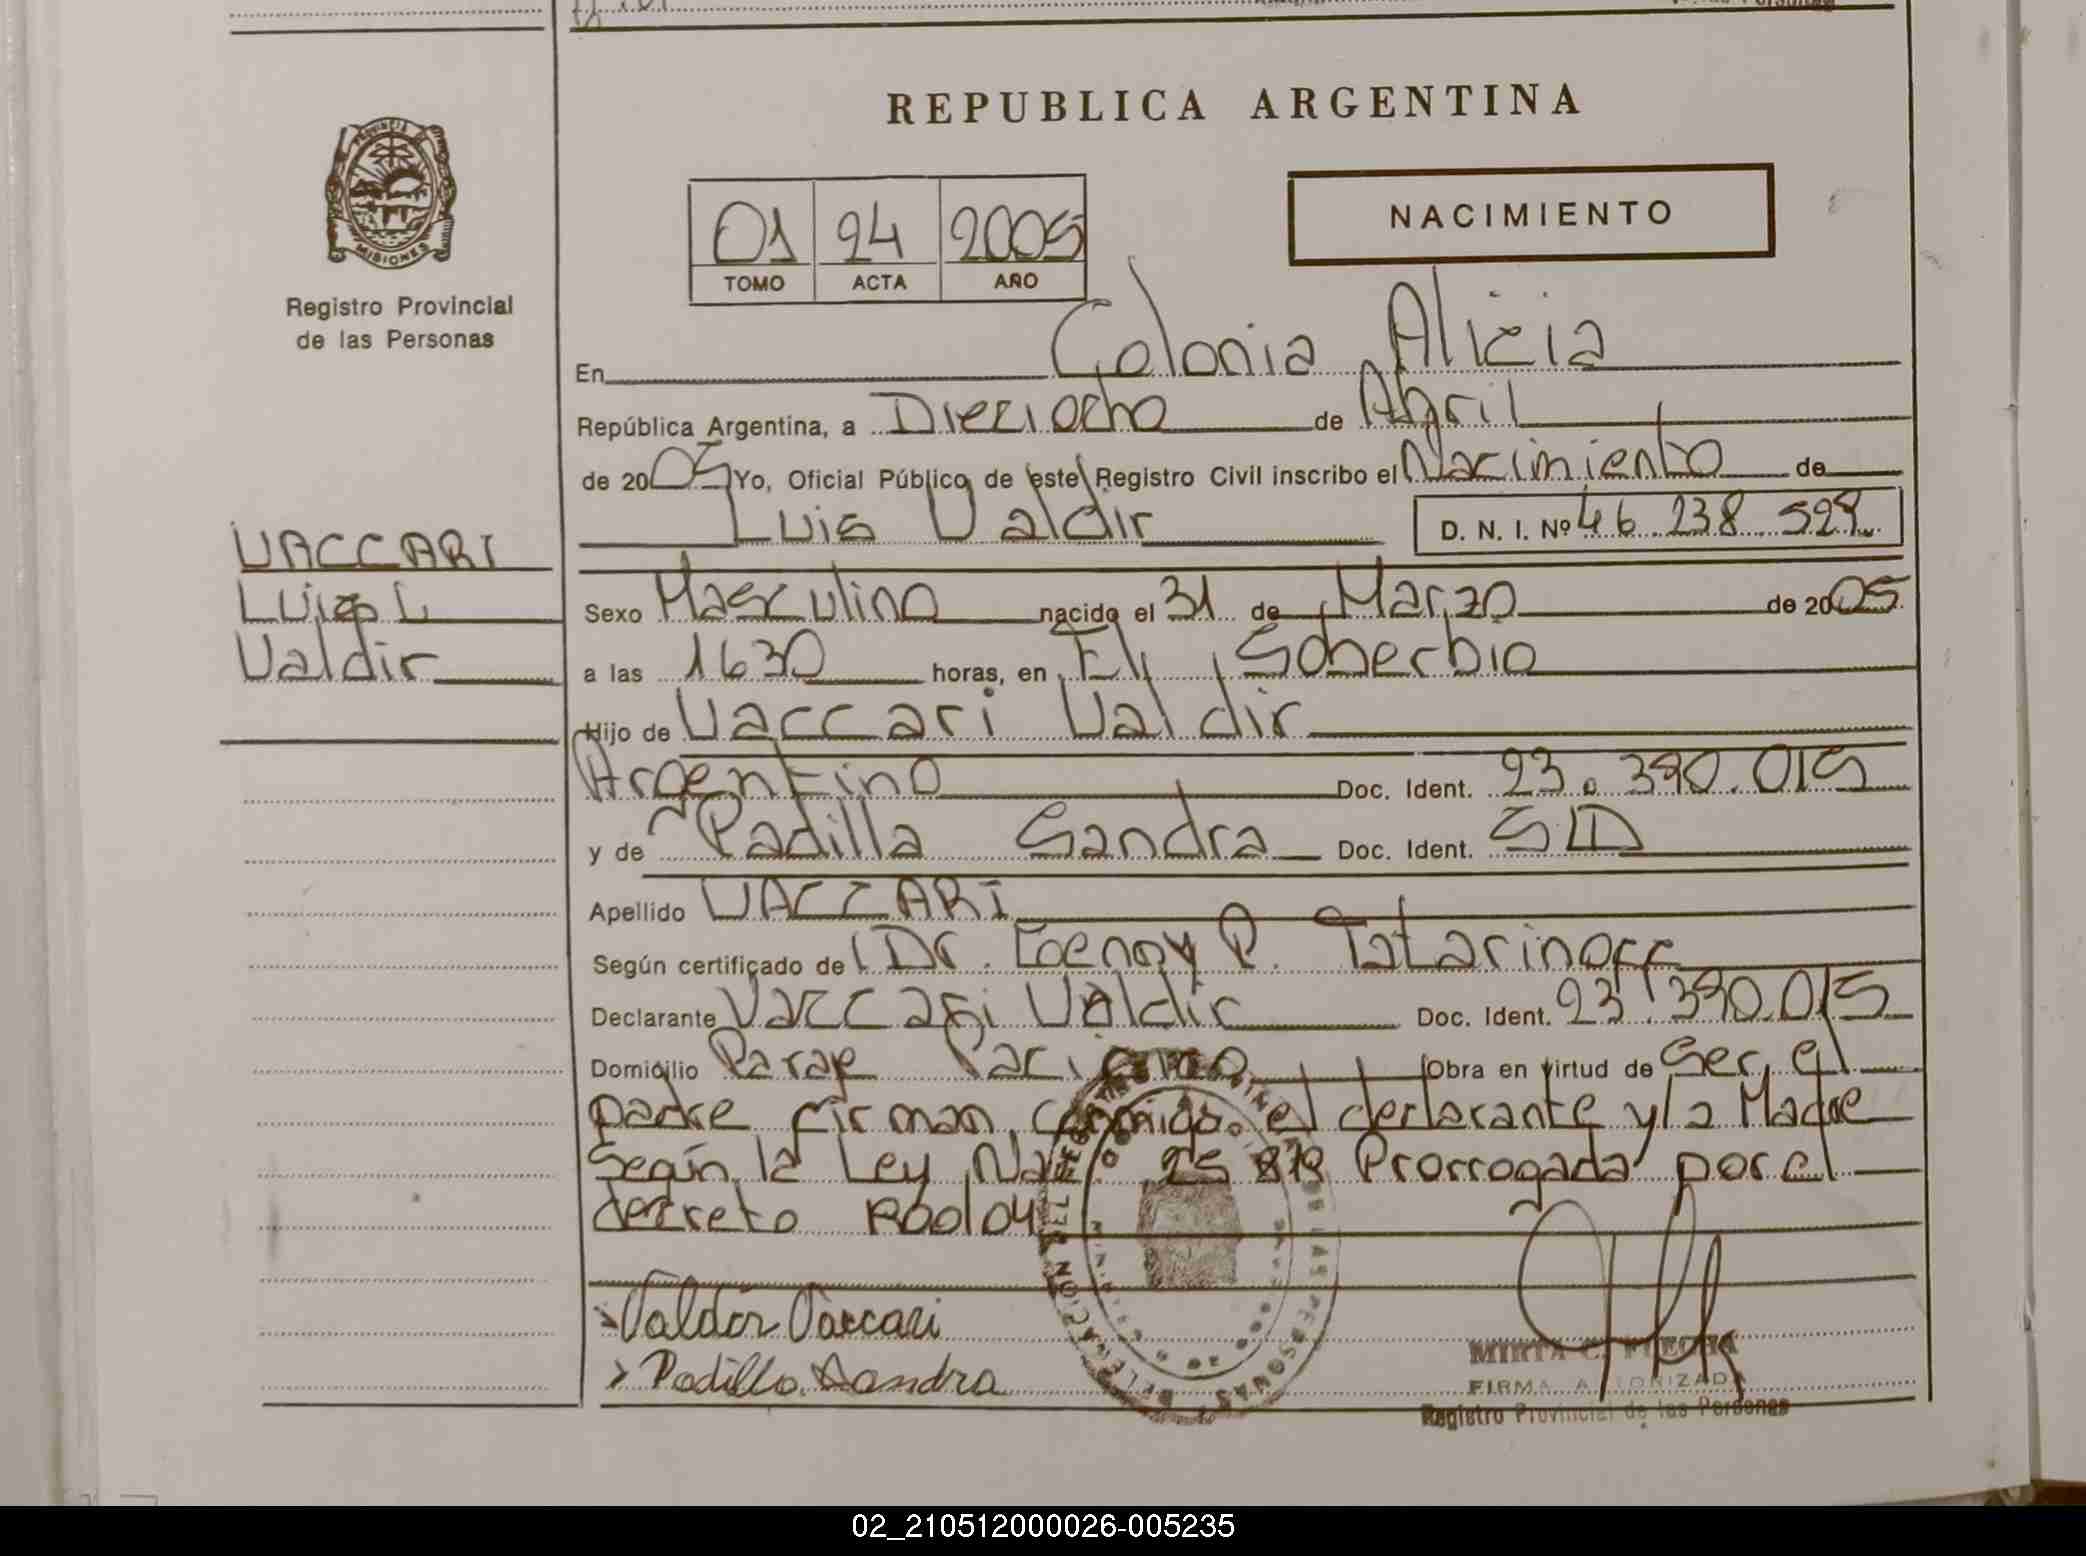 REPUBLICA ARGENTINA
PROVINCIA DE MISIONES
Registro Provincial
de las Personas
01 24 2005
TOMO ACTA AÑO
NACIMIENTO
En Colonia Alicia
República Argentina, a Dieciocho de Abril
de 2005 Yo, Oficial Público de este Registro Civil inscribo el Nacimiento de
Luis Valdir D. N. I. Nº 46 238 529
VACCARI
Luis
Valdir
Sexo Masculino nacido el 31 de Marzo de 2005
a las 1630 horas, en El Soberbio
Hijo de Vaccari Valdir
Argentino Doc. Ident. 23.390.015
y de Padilla Sandra Doc. Ident. S/D
Apellido VACCARI
Según certificado de Dr. P. Tatarinoff
Declarante Vaccari Valdir Doc. Ident. 23.390.015
Domicilio Paraje Obra en virtud de Ser el
padre firman conmigo el declarante y la Madre
Según la Ley 25 819 Prorrogada por el
decreto
Valdir Vaccari
Padilla Sandra
DELEGACION DEL REGISTRO DE LAS PERSONAS
MIRTA C.
FIRMA AUTORIZADA
Registro Provincial de las Personas
02_210512000026-005235